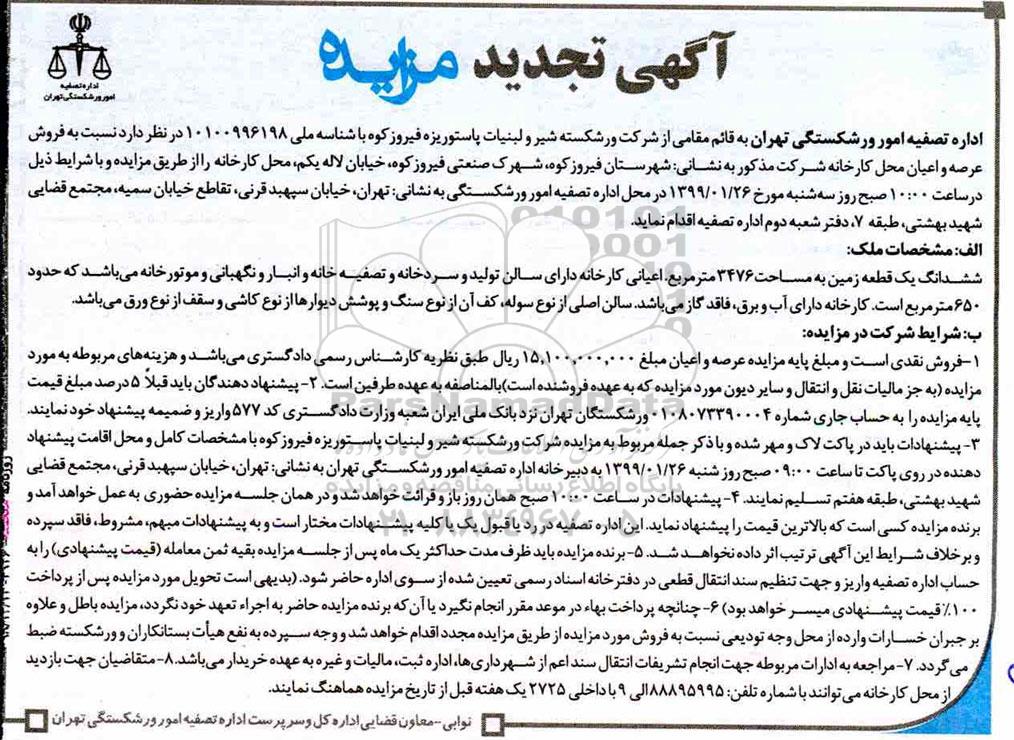 آگهی تجدید مزایده
اداره تصفیه
امور ورشکستگی تهران
اداره تصفیه امور ورشکستگی تهران به قائم مقامی از شرکت ورشکسته شیر و لبنیات پاستوریزه فیروزکوه با شناسه ملی ۱۰۱۰۰۹۹۶۱۹۸ در نظر دارد نسبت به فروش
عرصه و اعیان محل کارخانه شرکت مذکور به نشانی: شهرستان فیروزکوه، شهرک صنعتی فیروزکوه، خیابان لاله یکم، محل کارخانه را از طریق مزایده و با شرایط ذیل
در ساعت ۱۰:۰۰ صبح روز سه‌شنبه مورخ ۱۳۹۹/۰۱/۲۶ در محل اداره تصفیه امور ورشکستگی به نشانی: تهران، خیابان سپهبد قرنی، تقاطع خیابان سمیه، مجتمع قضایی
شهید بهشتی، طبقه ۷، دفتر شعبه دوم اداره تصفیه اقدام نماید.
الف: مشخصات ملک:
ششدانگ یک قطعه زمین به مساحت ۳۴۷۶ مترمربع. اعیانی کارخانه دارای سالن تولید و سردخانه و تصفیه خانه و انبار و نگهبانی و موتورخانه می‌باشد که حدود
۶۵۰ مترمربع است. کارخانه دارای آب و برق، فاقد گاز می‌باشد. سالن اصلی از نوع سوله، کف آن از نوع سنگ و پوشش دیوارها از نوع کاشی و سقف از نوع ورق می‌باشد.
ب: شرایط شرکت در مزایده:
۱- فروش نقدی است و مبلغ پایه مزایده عرصه و اعیان مبلغ ۱۵,۱۰۰,۰۰۰,۰۰۰ ریال طبق نظریه کارشناس رسمی دادگستری می‌باشد و هزینه‌های مربوطه به مورد
مزایده (به جز مالیات نقل و انتقال و سایر دیون مورد مزایده که به عهده فروشنده است) بالمناصفه به عهده طرفین است. ۲- پیشنهاد دهندگان باید قبلاً ۵ درصد مبلغ قیمت
پایه مزایده را به حساب جاری شماره ۰۱۰۸۰۷۳۳۹۰۰۰۴ ورشکستگان تهران نزد بانک ملی ایران شعبه وزارت دادگستری کد ۵۷۷ واریز و ضمیمه پیشنهاد خود نمایند.
۳- پیشنهادات باید در پاکت لاک و مهر شده و با ذکر جمله مربوط به مزایده شرکت ورشکسته شیر و لبنیات پاستوریزه فیروزکوه با مشخصات کامل و محل اقامت پیشنهاد
دهنده در روی پاکت تا ساعت ۰۹:۰۰ صبح روز شنبه ۱۳۹۹/۰۱/۲۶ به دبیرخانه اداره تصفیه امور ورشکستگی تهران به نشانی: تهران، خیابان سپهبد قرنی، مجتمع قضایی
شهید بهشتی، طبقه هفتم تسلیم نمایند. ۴- پیشنهادات در ساعت ۱۰:۰۰ صبح همان روز باز و قرائت خواهد شد و در همان جلسه مزایده حضوری به عمل خواهد آمد و
برنده مزایده کسی است که بالاترین قیمت را پیشنهاد نماید. این اداره تصفیه در رد یا قبول یک یا کلیه پیشنهادات مختار است و به پیشنهادات مبهم، مشروط، فاقد سپرده
و برخلاف شرایط این آگهی ترتیب اثر داده نخواهد شد. ۵- برنده مزایده باید ظرف مدت حداکثر یک ماه پس از جلسه مزایده بقیه ثمن معامله (قیمت پیشنهادی) را به
حساب اداره تصفیه واریز و جهت تنظیم سند انتقال قطعی در دفترخانه اسناد رسمی تعیین شده از سوی اداره حاضر شود. (بدیهی است تحویل مورد مزایده پس از پرداخت
۱۰۰٪ قیمت پیشنهادی میسر خواهد بود) ۶- چنانچه پرداخت بهاء در موعد مقرر انجام نگیرد یا آن که برنده مزایده حاضر به اجراء تعهد خود نگردد، مزایده باطل و علاوه
بر جبران خسارات وارده از محل وجه تودیعی نسبت به فروش مورد مزایده از طریق مزایده مجدد اقدام خواهد شد و وجه سپرده به نفع هیأت بستانکاران و ورشکسته ضبط
می‌گردد. ۷- مراجعه به ادارات مربوطه جهت انجام تشریفات انتقال سند اعم از شهرداری‌ها، اداره ثبت، مالیات و غیره به عهده خریدار می‌باشد. ۸- متقاضیان جهت بازدید
از محل کارخانه می‌توانند با شماره تلفن: ۸۸۸۹۵۹۹۵ الی ۹ با داخلی ۲۷۲۵ یک هفته قبل از تاریخ مزایده هماهنگ نمایند.
نوایی - معاون قضایی اداره کل و سرپرست اداره تصفیه امور ورشکستگی تهران
ParsNamadData
پایگاه اطلاع رسانی مناقصه و مزایده